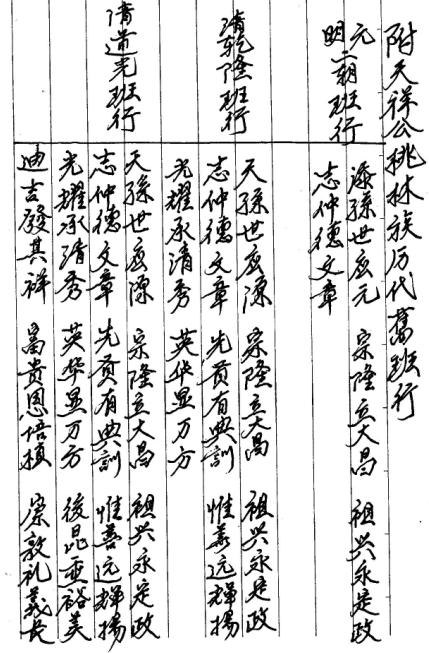 附天祥公桃林族历代旧班行
元明二朝班行
添孫世应元 宗隆立大昌 祖兴永定政
志仲德文章
清乾隆班行
天孫世应添 宗隆立大昌 祖兴永定政
志仲德文章 先贡有典訓 惟善远輝揚
光耀承清秀 英华显万方
清道光班行
天孫世应添 宗隆立大昌 祖兴永定政
志仲德文章 先贡有典訓 惟善远輝揚
光耀承清秀 英华显万方 後昆垂裕美
迪吉發其祥 富貴恩培植 崇敦礼義長